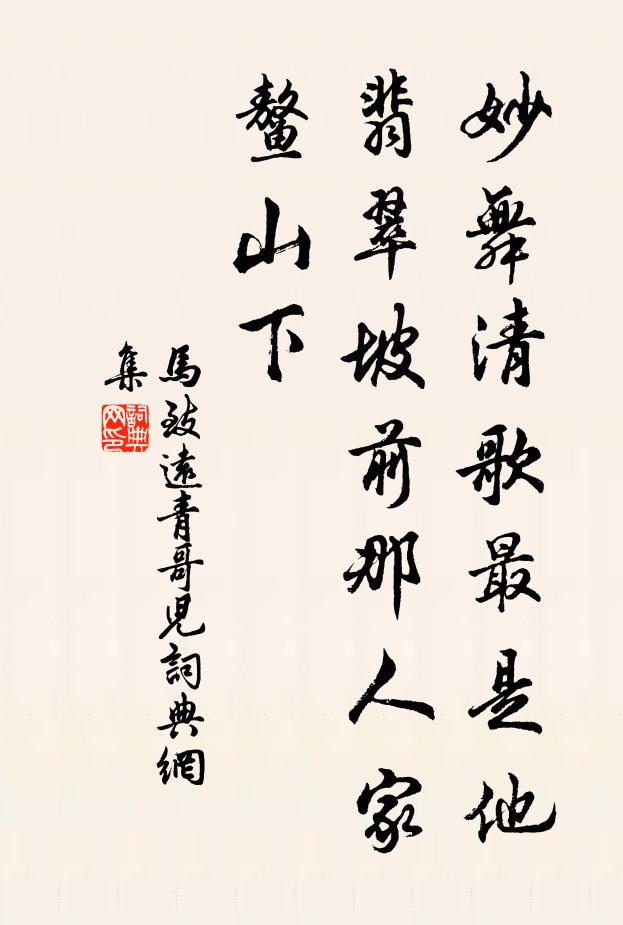 妙舞清歌最是他
翡翠坡前那人家
鳌山下
馬致遠青哥兒詞典網
集
詞典
网印